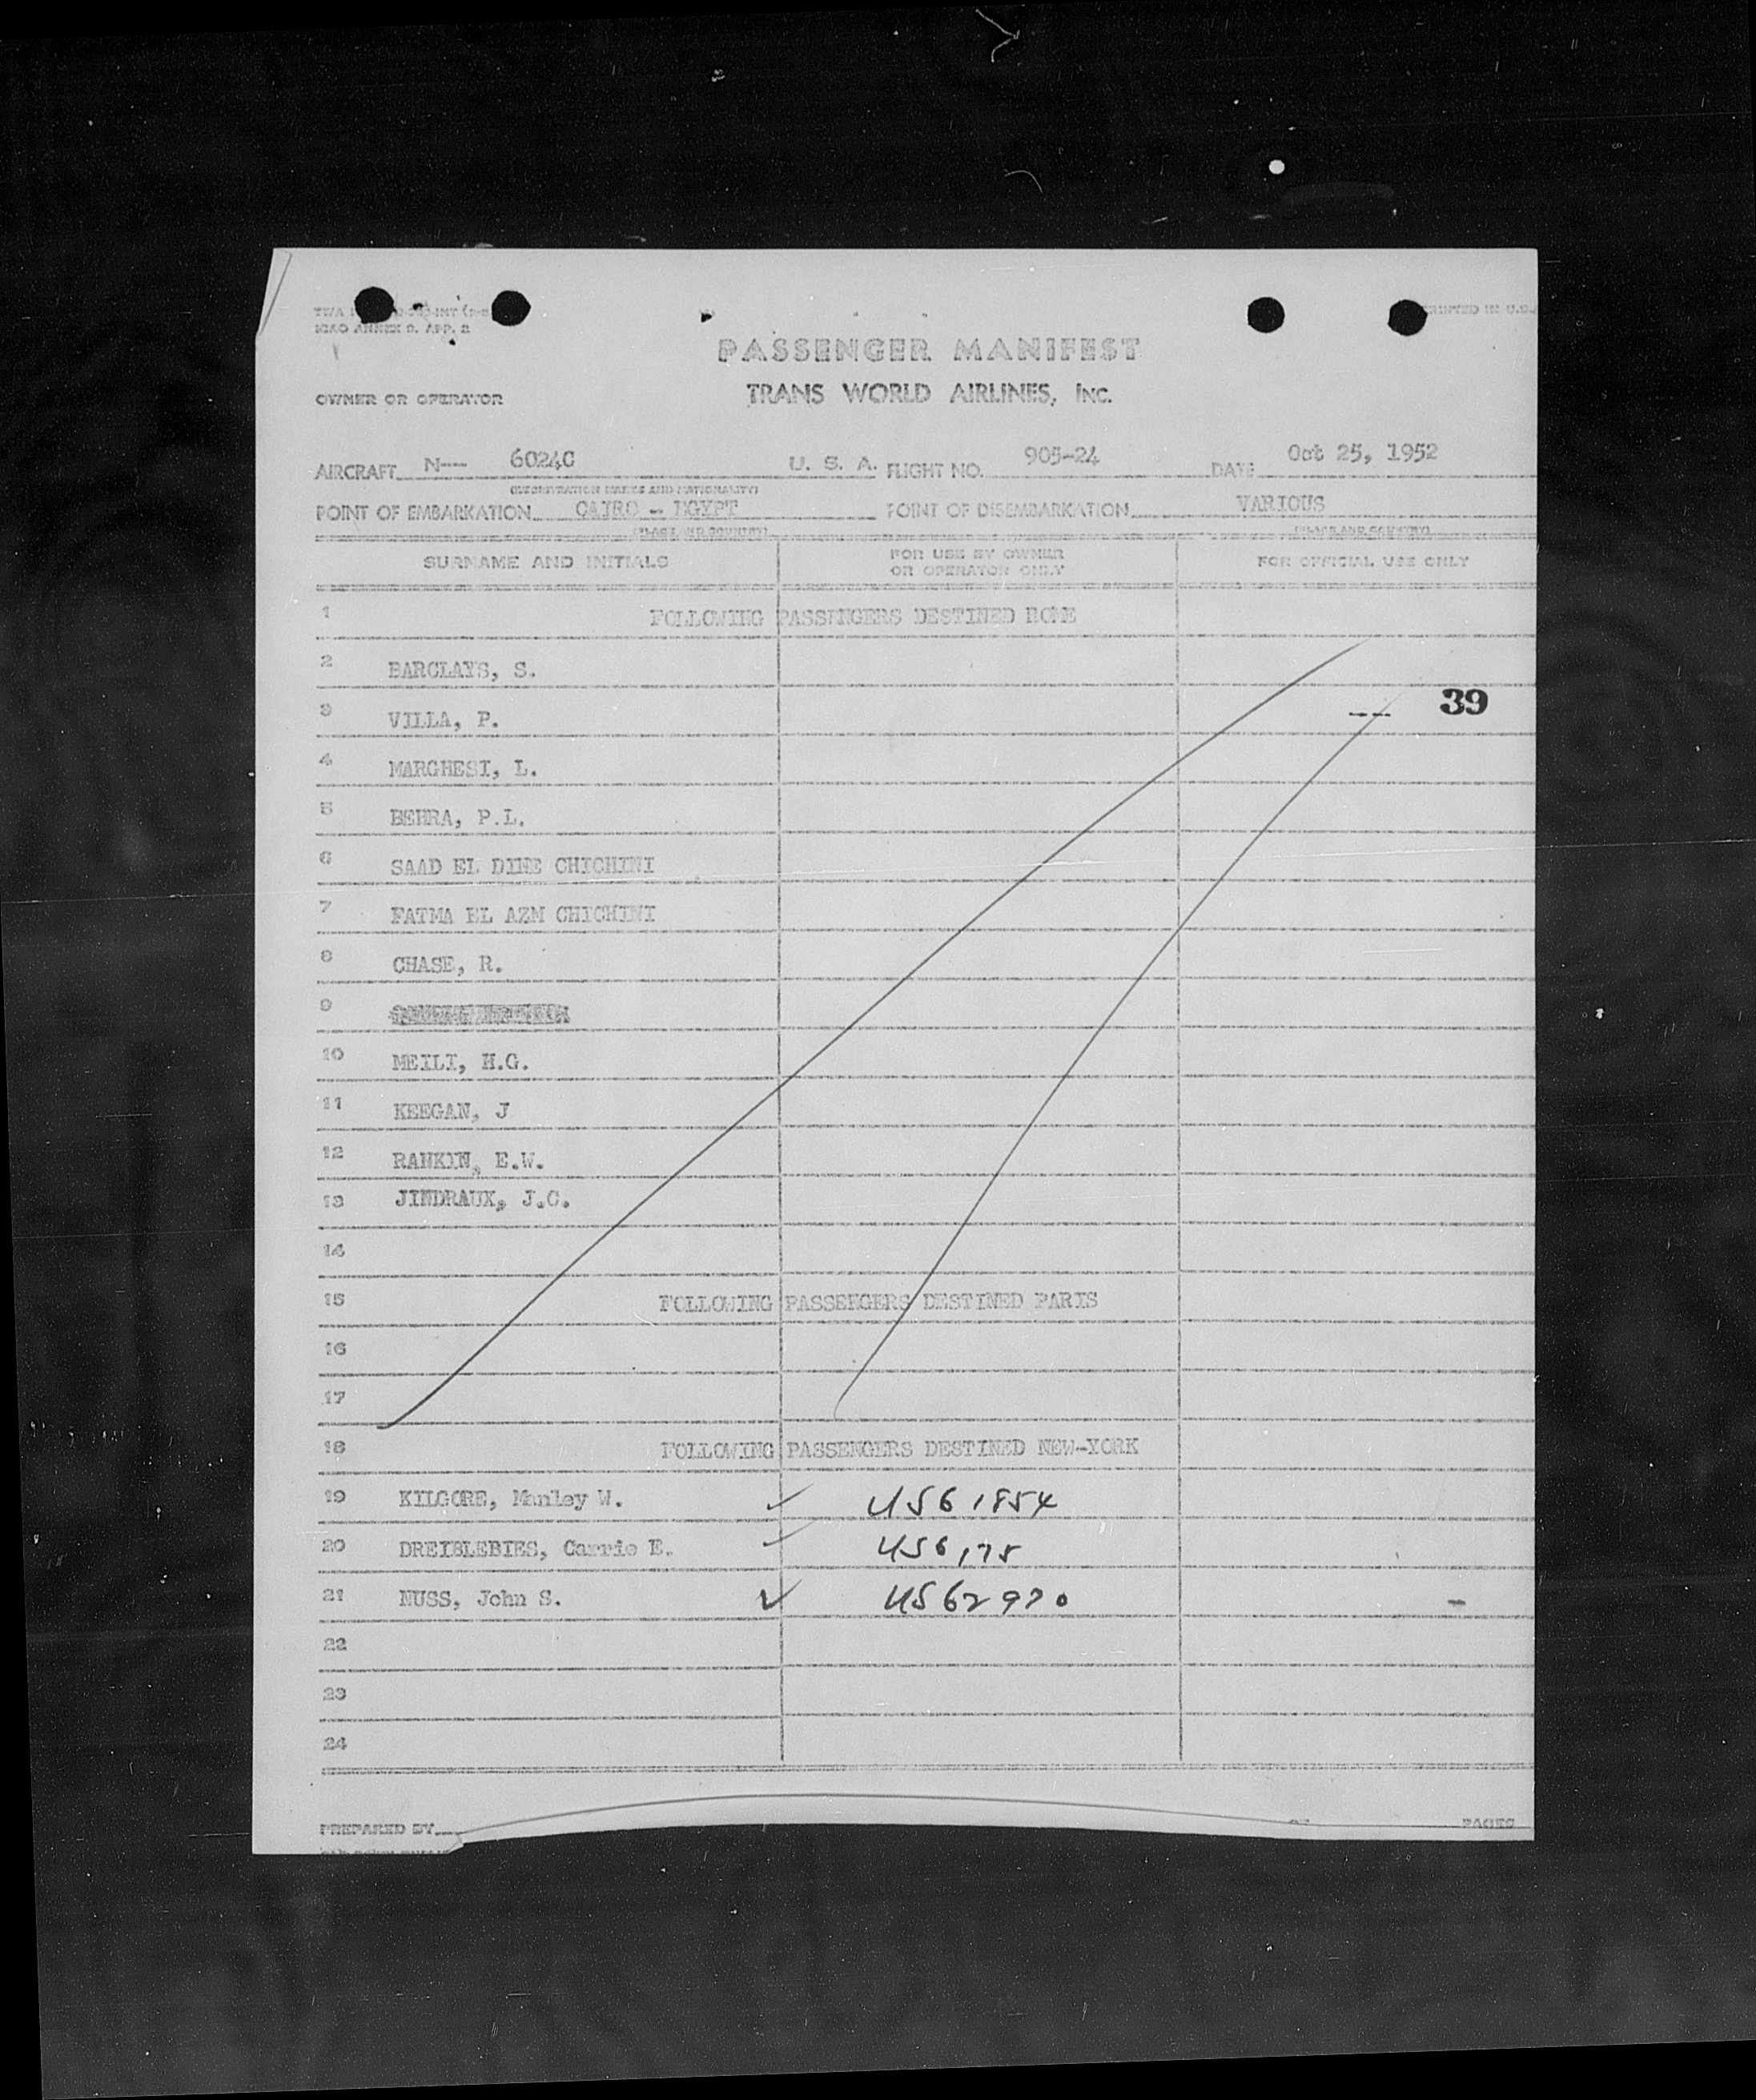 ICAO ANNEX 9, APP. 2
PRINTED IN U.S.A
PASSENGER MANIFEST
TRANS WORLD AIRLINES, INC.
OWNER OR OPERATOR
AIRCRAFT N-- 6024C U. S. A. FLIGHT NO. 905-24 DATE Oct 25, 1952
(REGISTRATION MARKS AND NATIONALITY)
POINT OF EMBARKATION CAIRO - EGYPT POINT OF DISEMBARKATION VARIOUS
(PLACE AND COUNTRY) (PLACE AND COUNTRY)
SURNAME AND INITIALS FOR USE BY OWNER OR OPERATOR ONLY FOR OFFICIAL USE ONLY
1 FOLLOWING PASSENGERS DESTINED ROME
2 BARCLAYS, S.
3 VILLA, P. -- 39
4 MARGHESI, L.
5 BEHRA, P.L.
6 SAAD EL DINE CHICHINI
7 FATMA EL AZM CHICHINI
8 CHASE, R.
9
10 MEILI, H.G.
11 KEEGAN, J
12 RANKIN, E.W.
13 JINDRAUX, J.C.
14
15 FOLLOWING PASSENGERS DESTINED PARIS
16
17
18 FOLLOWING PASSENGERS DESTINED NEW-YORK
19 KILGORE, Manley W. ✓ US61854
20 DREIBLEBIES, Carrie E. ✓ US6175
21 NUSS, John S. ✓ US62970
22
23
24
PREPARED BY OF PAGES